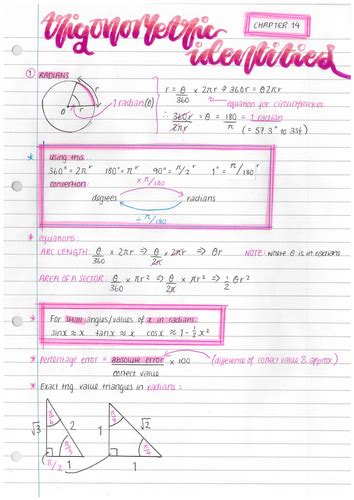 trigonometric identities
CHAPTER 14
① RADIANS
r
O
r
1 radian (θ)
r = θ/360 × 2πr → 360r = θ2πr
equation for circumference
∴ 360r/2πr = θ = 180/π = 1 radian
(= 57.3° to 3sf)
* Using this:
360° = 2πʳ 180° = πʳ 90° = π/2ʳ 1° = π/180ʳ
convention:
× π/180
degrees radians
÷ π/180
* equations:
ARC LENGTH: θ/360 × 2πr ⇒ θ/2π × 2πr ⇒ θr NOTE: where θ is in radians
AREA OF A SECTOR: θ/360 × πr² ⇒ θ/2π × πr² ⇒ 1/2 θr²
* For small angles/values of x in radians:
sinx ≈ x tanx ≈ x cosx ≈ 1 - ½x²
* Percentage error = absolute error/correct value × 100 (difference of correct value & approx)
* Exact trig. value triangles in radians:
√3 2 π/6 π/3 π/2 1
1 √2 π/4 π/4 1